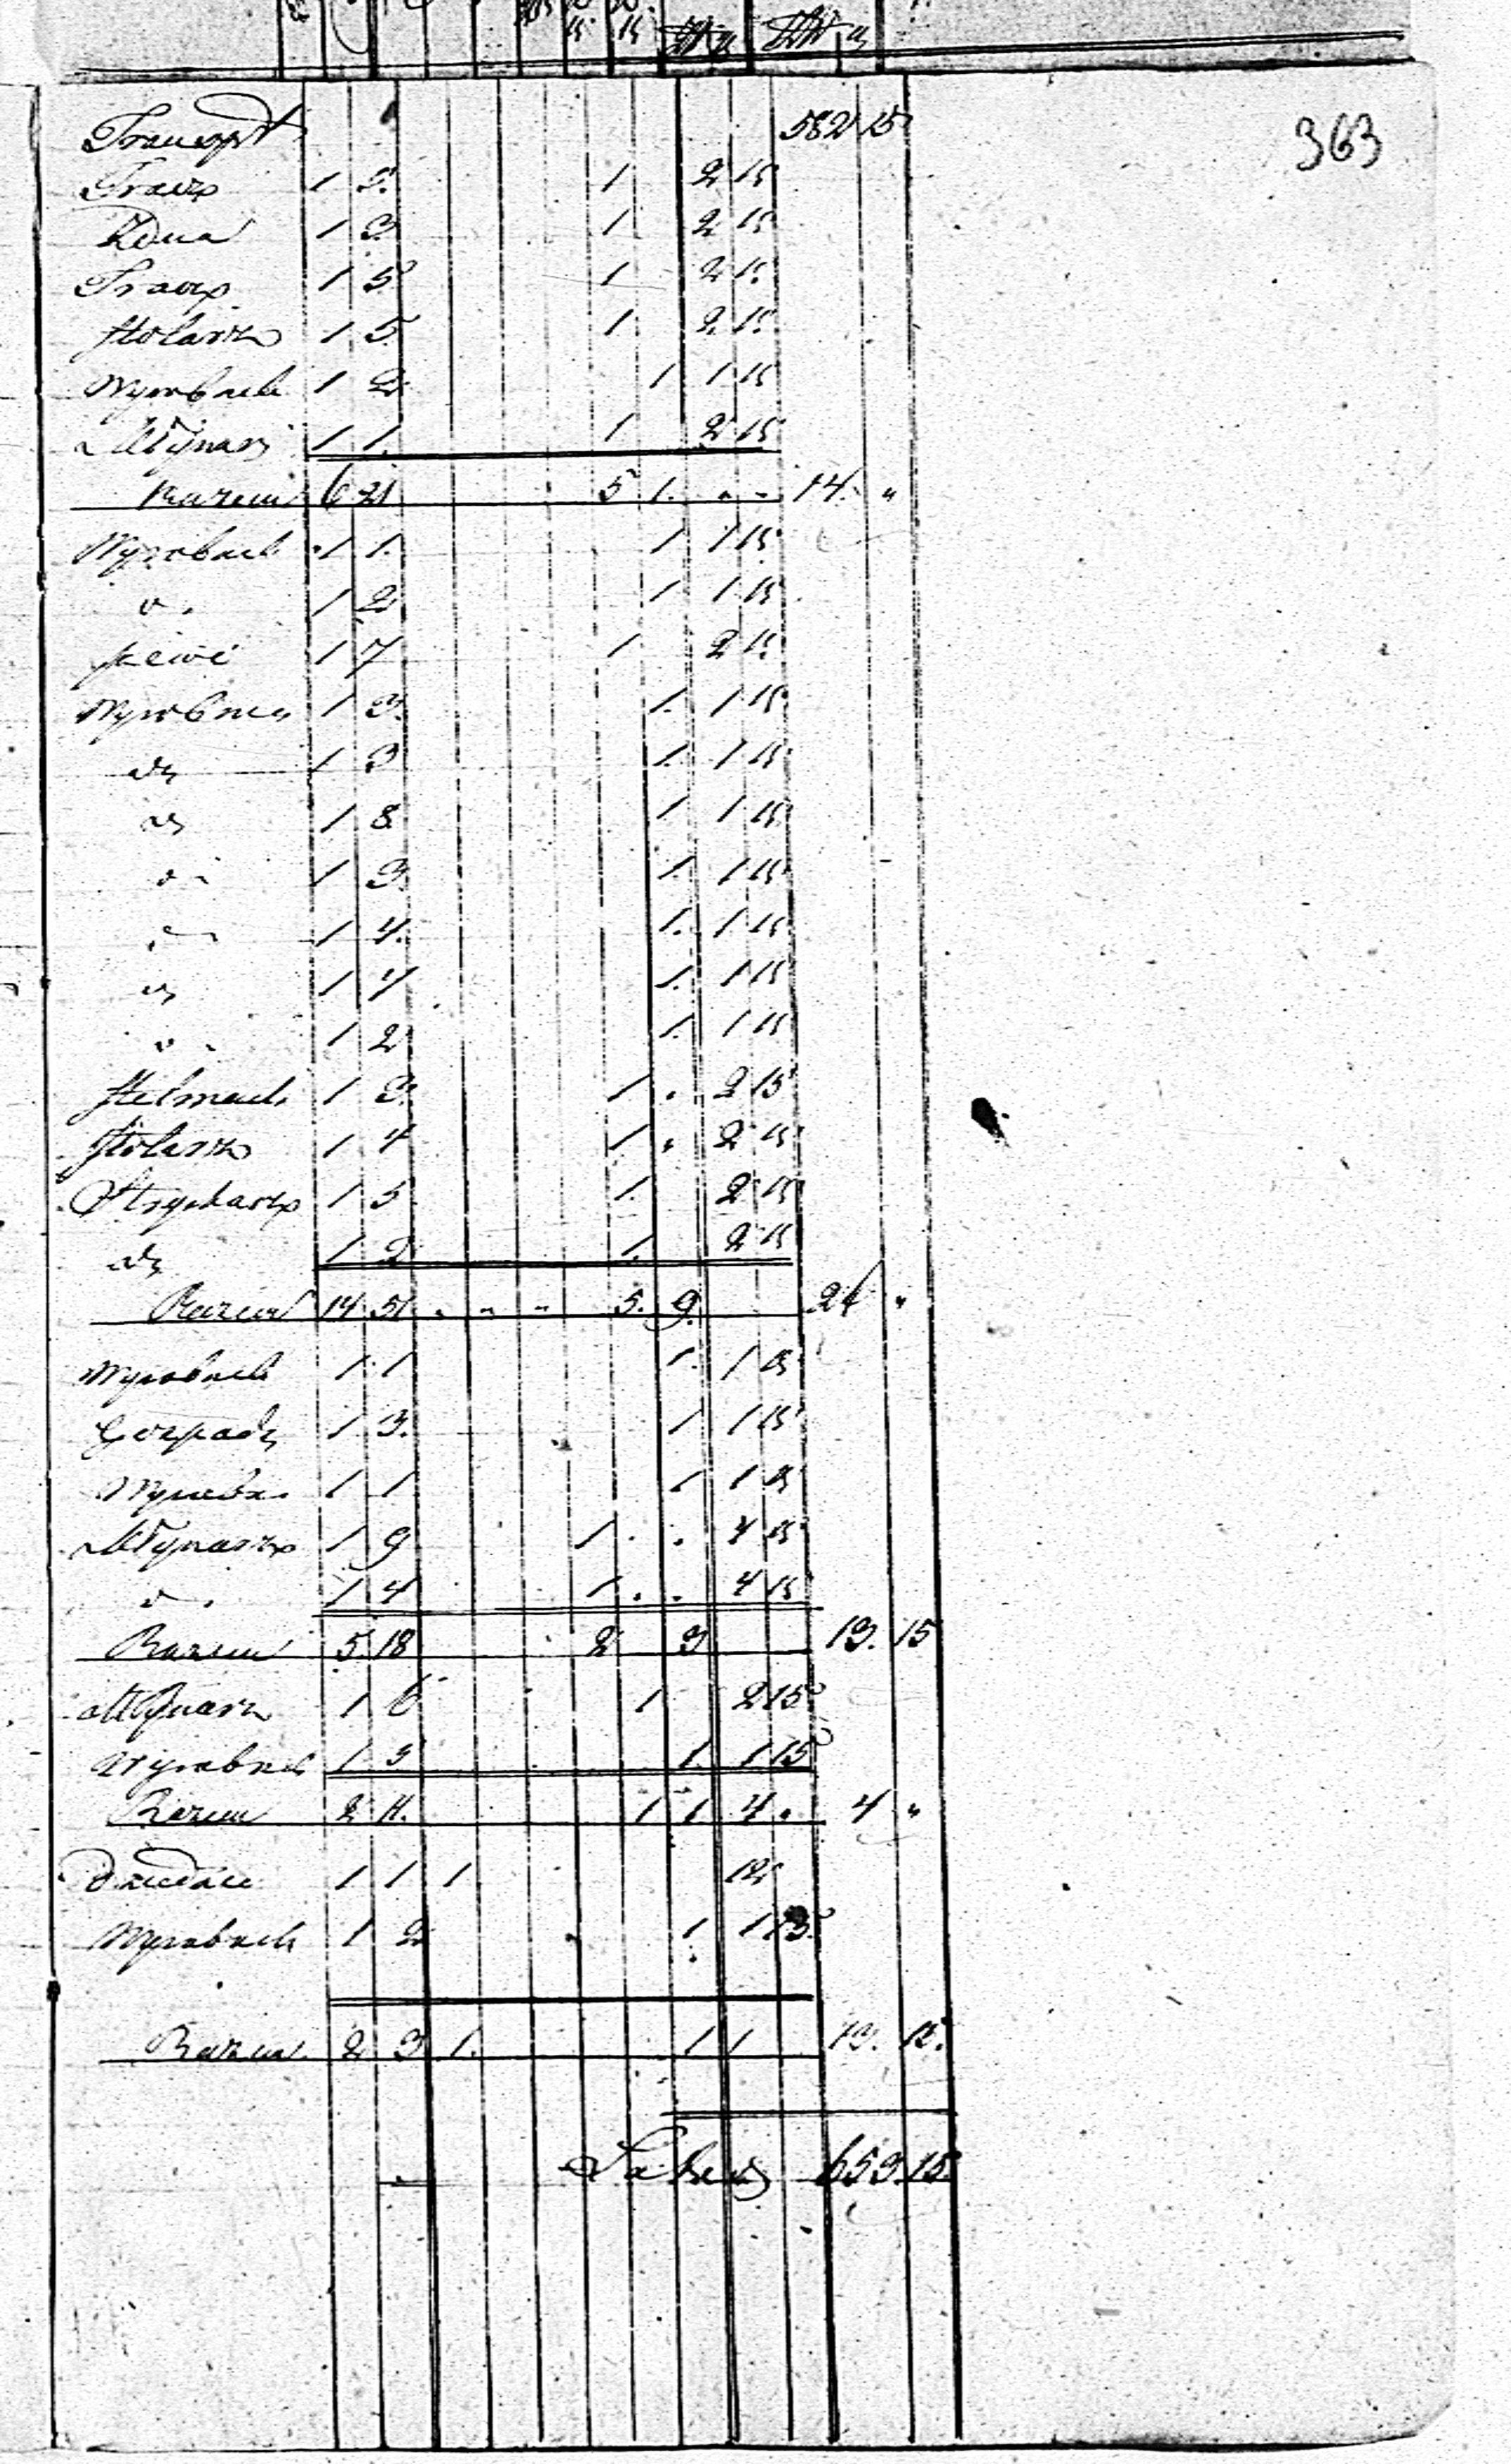 363
Transport 582 15
Tracz 1 3. 1 2 15
Zdun 1 3 1 2 15
Tracz 1 5 1 2 15
Stolarz 1 5. 1 2 15
Wyrobnik 1 2 1 1 15
Młynarz 1 1. 1 2 15
Razem 6 21 5 1. " " 14. "
Wyrobnik 1 1. 1 1 15
1 2 1 1 15
1 7 1 2 15
Wyrobnik 1 3. 1. 1 15
do 1 3 1. 1 15
do 1 8 1 1 15
1 3. 1. 1 15
1 4. 1. 1 15
do 1 4 1. 1 15
1 2 1. 1 15
Stelmach 1 3. 1 . 2 15
Stolarz 1 4 1 " 2 15
Strycharz 1 5 1. 2 15
do 1 2 1. 2 15
Razem 14 51 " " " 5. 9. 26 "
Wyrobnik 1 1 1. 1 15
Gospod 1 3. 1 1 15
Wyrobn 1 1 1 1 15
Młynarz 1 9 1 . . 4 15
1 4 1 . . 4 15
Razem 5 18 2 3 13. 15
Młynarz 1 6 1 2 15
Wyrobnik 1 5 1. 1 15
Razem 2 11. 1 1 4 " 4 "
1 1 1 12
Wyrobnik 1 2 1 1 15
Razem 2 3 1. 1 1 13. 15.
Latus 653. 15